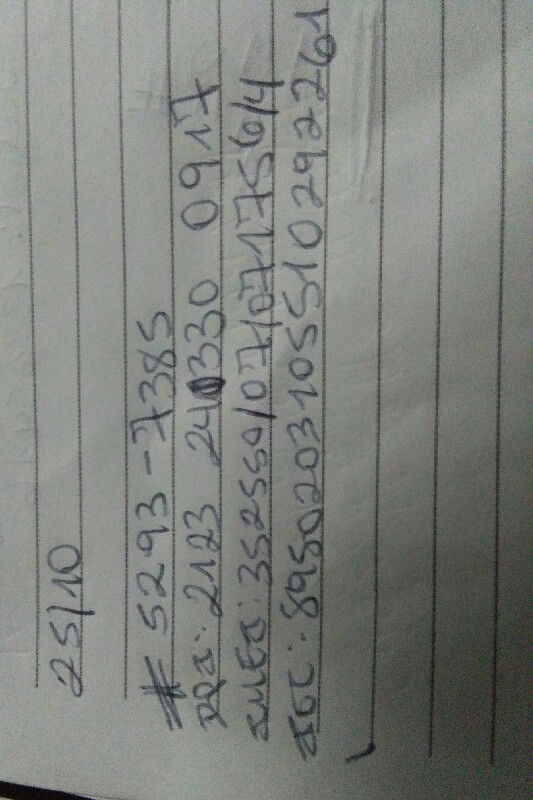 25/10
# 5293-7385
DPI: 2123 24330 0917
IMEI: 352550/07/071756/4
ICC: 8950203105510292261